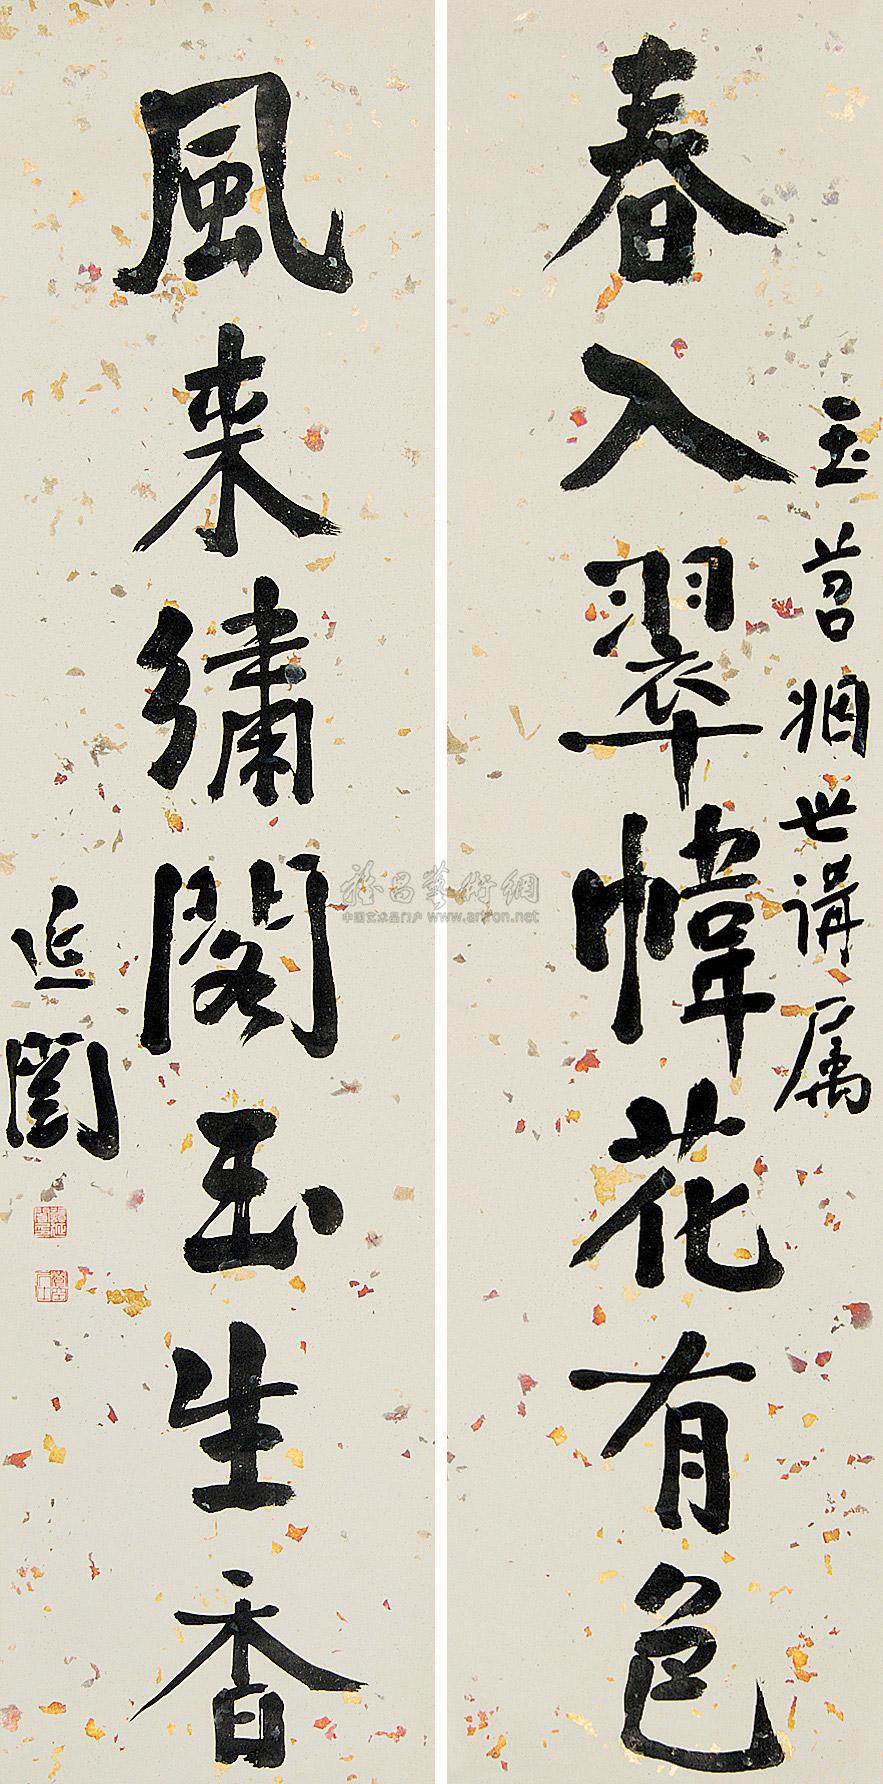 春入翠幃花有色
玉莒姻世講属
風来繡閣玉生香
延闓
雅昌藝術網
中国艺术品门户 www.artron.net